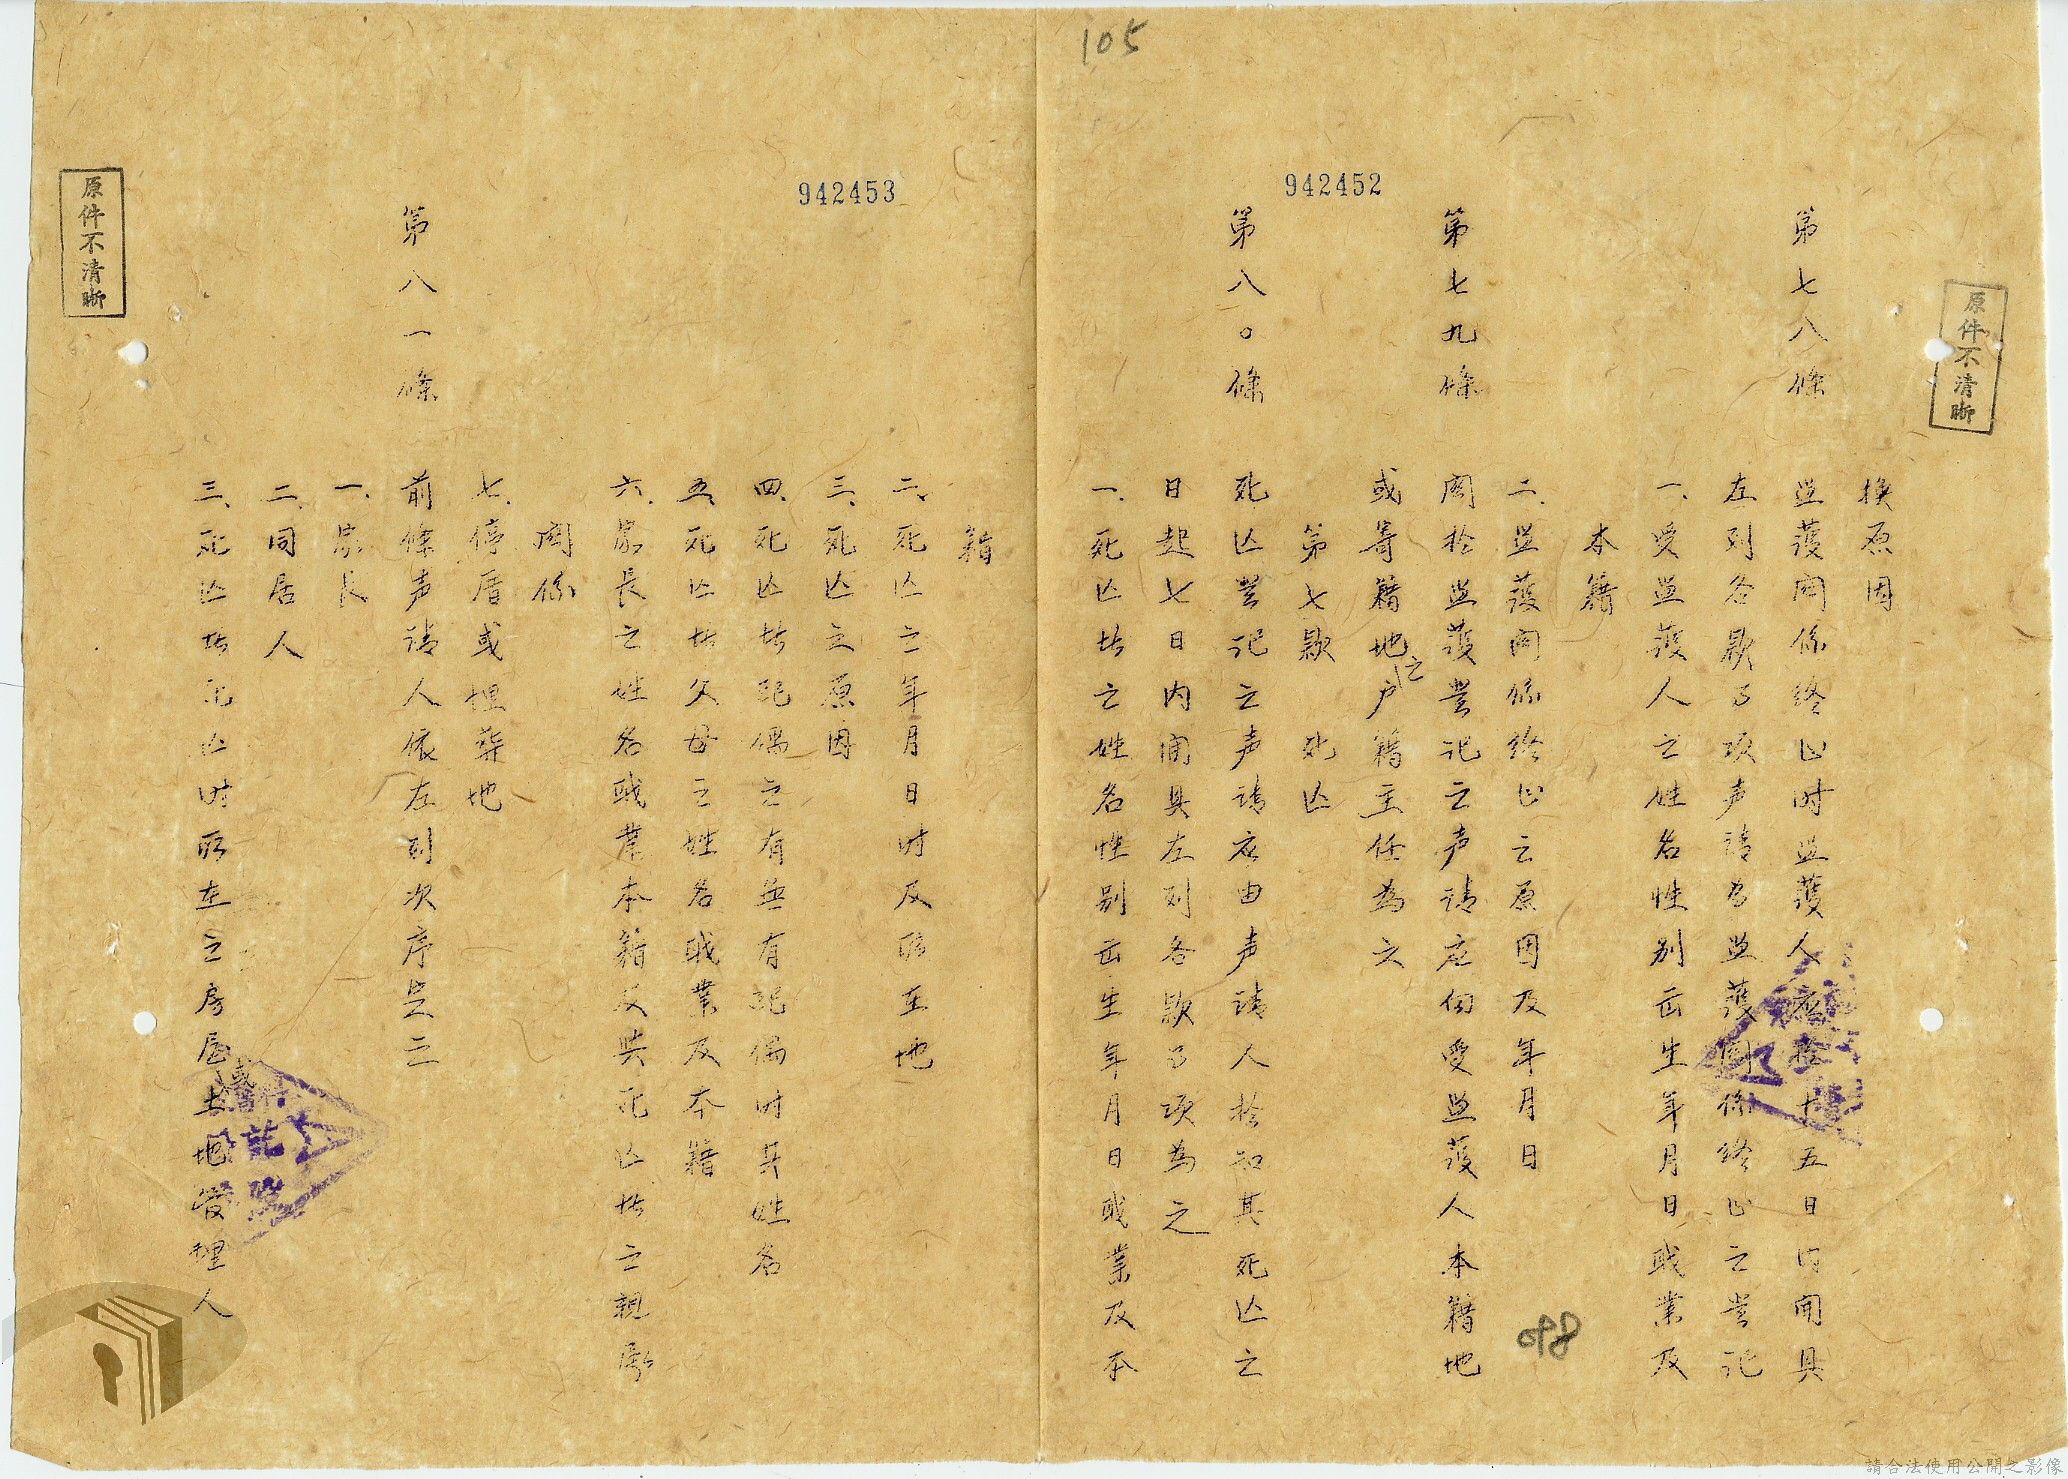 105
942452
原件不清晰
換原因
第七八條 監護関係終止时監護人應於十五日内開具
左列各款事項声请為監護関係終止之登记
一、受監護人之姓名性别出生年月日或業及
本籍
二、監護関係終止之原因及年月日
第七九條 関於監護登记之声请应向受監護人本籍地
或寄籍地之户籍主任為之
第七款 死亡
第八〇條 死亡登记之声请应由声请人於知其死亡之
日起七日内開具左列各款事项為之
一、死亡者之姓名性别出生年月日或業及本
098
942453
籍
二、死亡之年月日时及所在地
三、死亡之原因
四、死亡者配偶之有無有配偶时其姓名
五、死亡者父母之姓名或業及本籍
六、家長之姓名或業本籍及與死亡者之親屬
関係
七、停厝或埋葬地
第八一條 前條声请人依左列次序定之
一、家長
二、同居人
三、死亡者死亡时所在之房屋或土地管理人
原件不清晰
請合法使用公開之影像